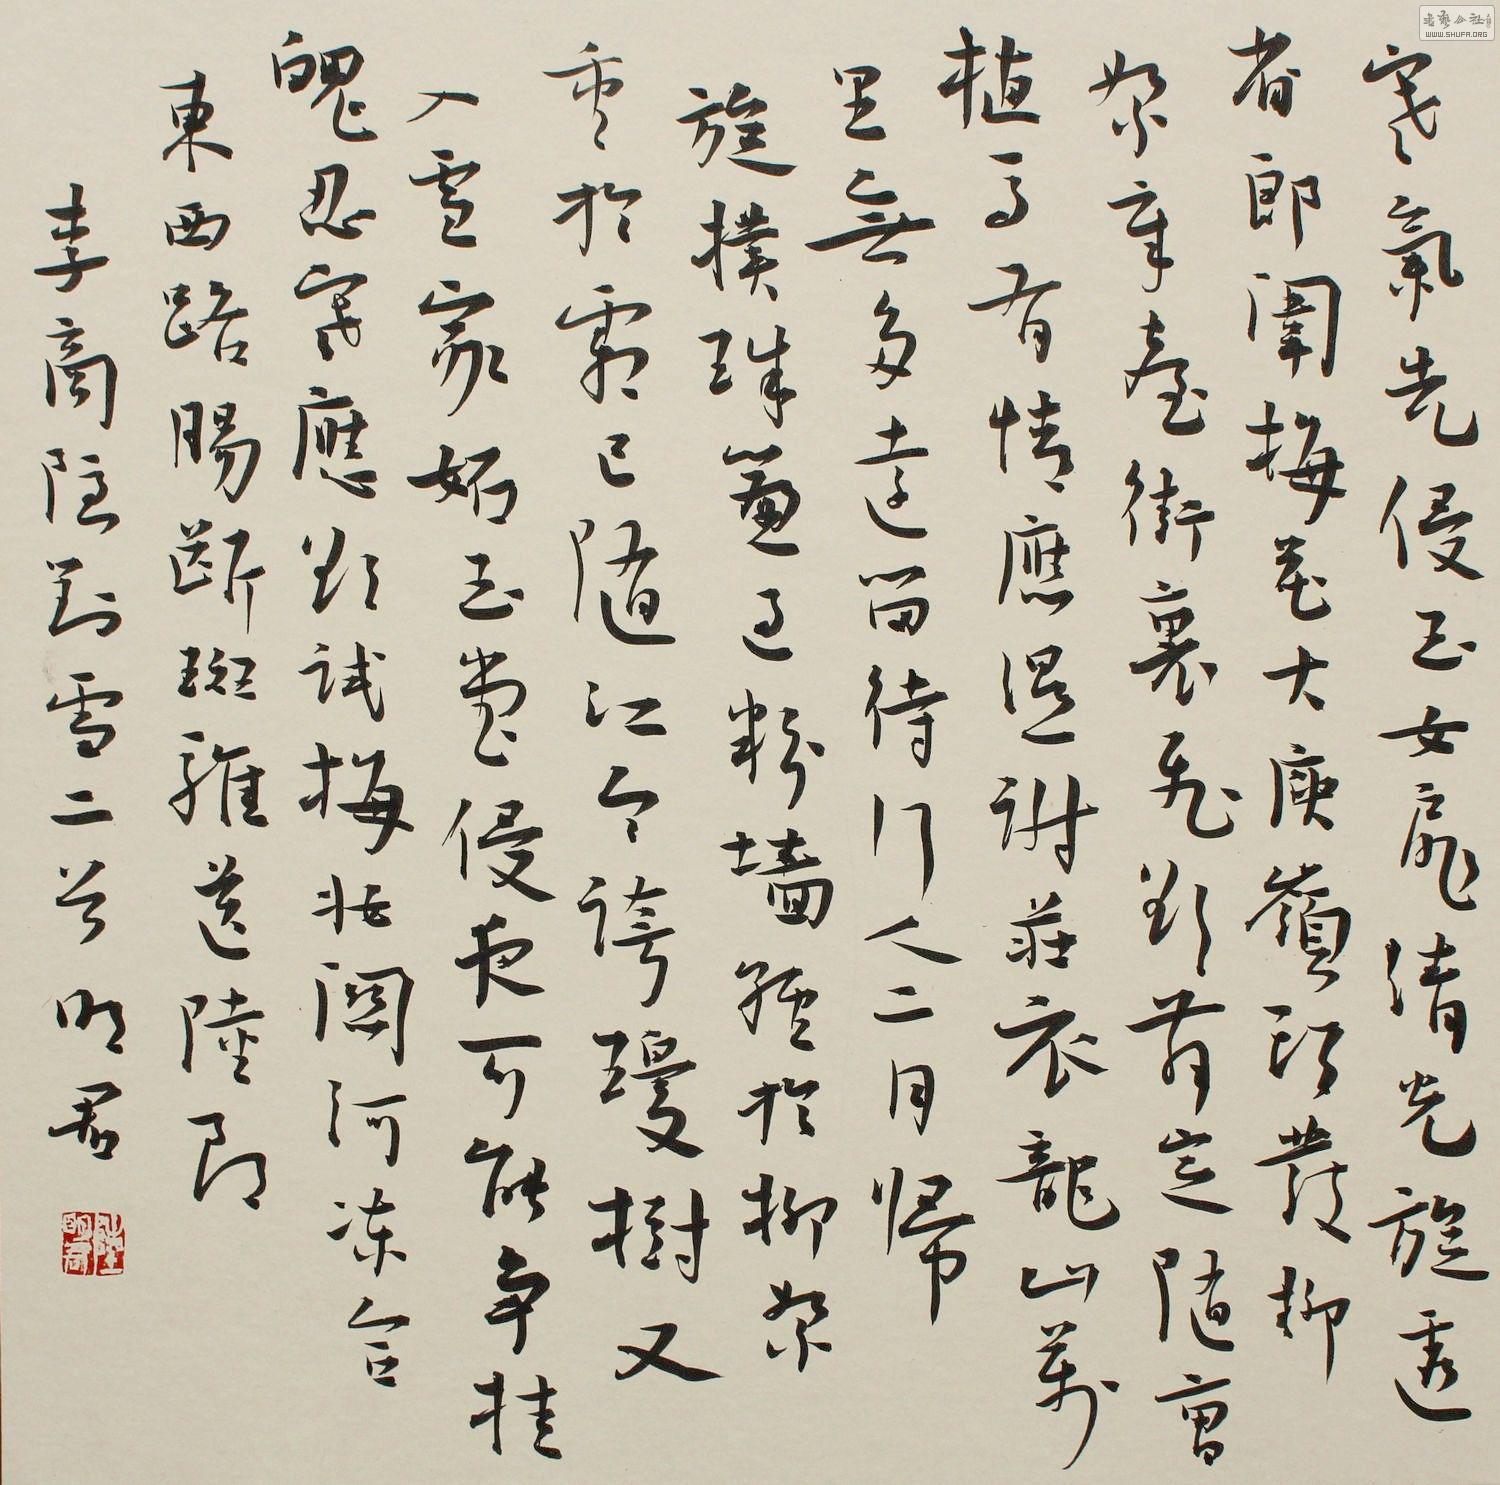 寒氣先侵玉女扉清光旋透
省郎闈梅花大庾嶺頭發柳
絮章臺街裏飛欲舞定隨曹
植馬有情應濕謝莊衣龍山萬
里無多遠留待行人二月歸
旋撲珠簾過粉墙輕於柳絮
重於霜已隨江令誇瓊樹又
入盧家妬玉堂侵夜可能争桂
魄忍寒應欲試梅妝關河凍合
東西路腸斷斑騅送陸郎
李商隱對雪二首明君
陸明君
WWW.SHUFA.ORG